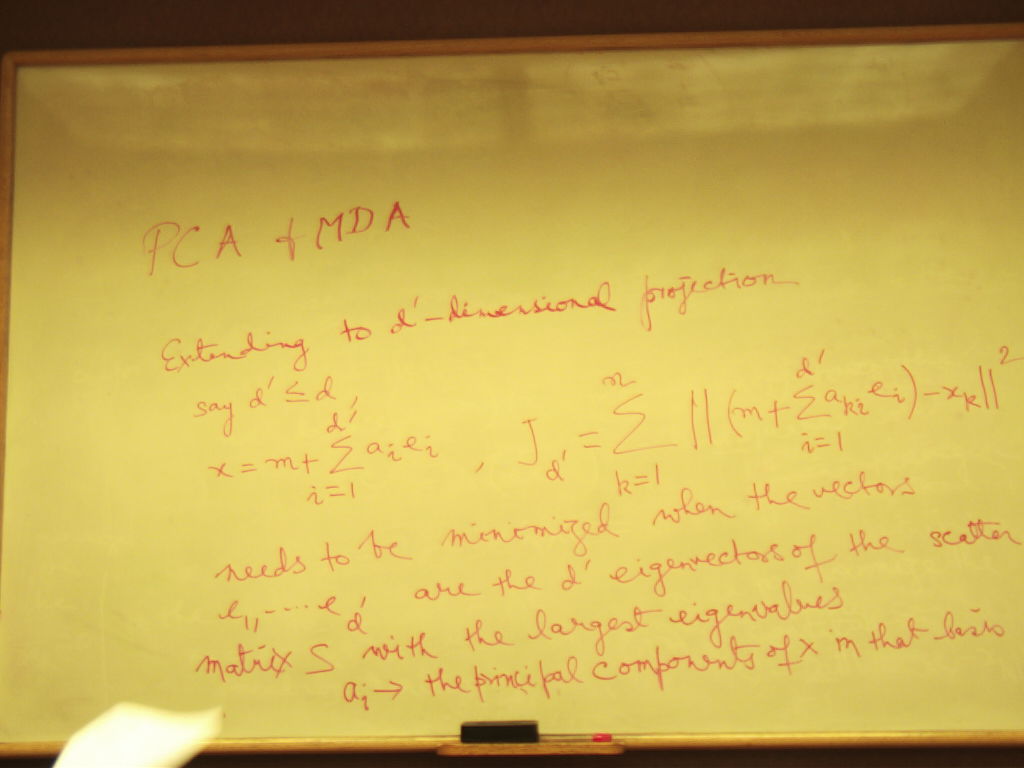 PCA & MDA
Extending to d'-dimensional projection
say d' ≤ d,
x = m + ∑_{i=1}^{d'} a_i e_i , J_{d'} = ∑_{k=1}^{n} || (m + ∑_{i=1}^{d'} a_{ki} e_i) - x_k ||^2
needs to be minimized when the vectors
e_1, ---- e_{d'} are the d' eigenvectors of the scatter
matrix S with the largest eigenvalues
a_i → the principal components of x in that basis